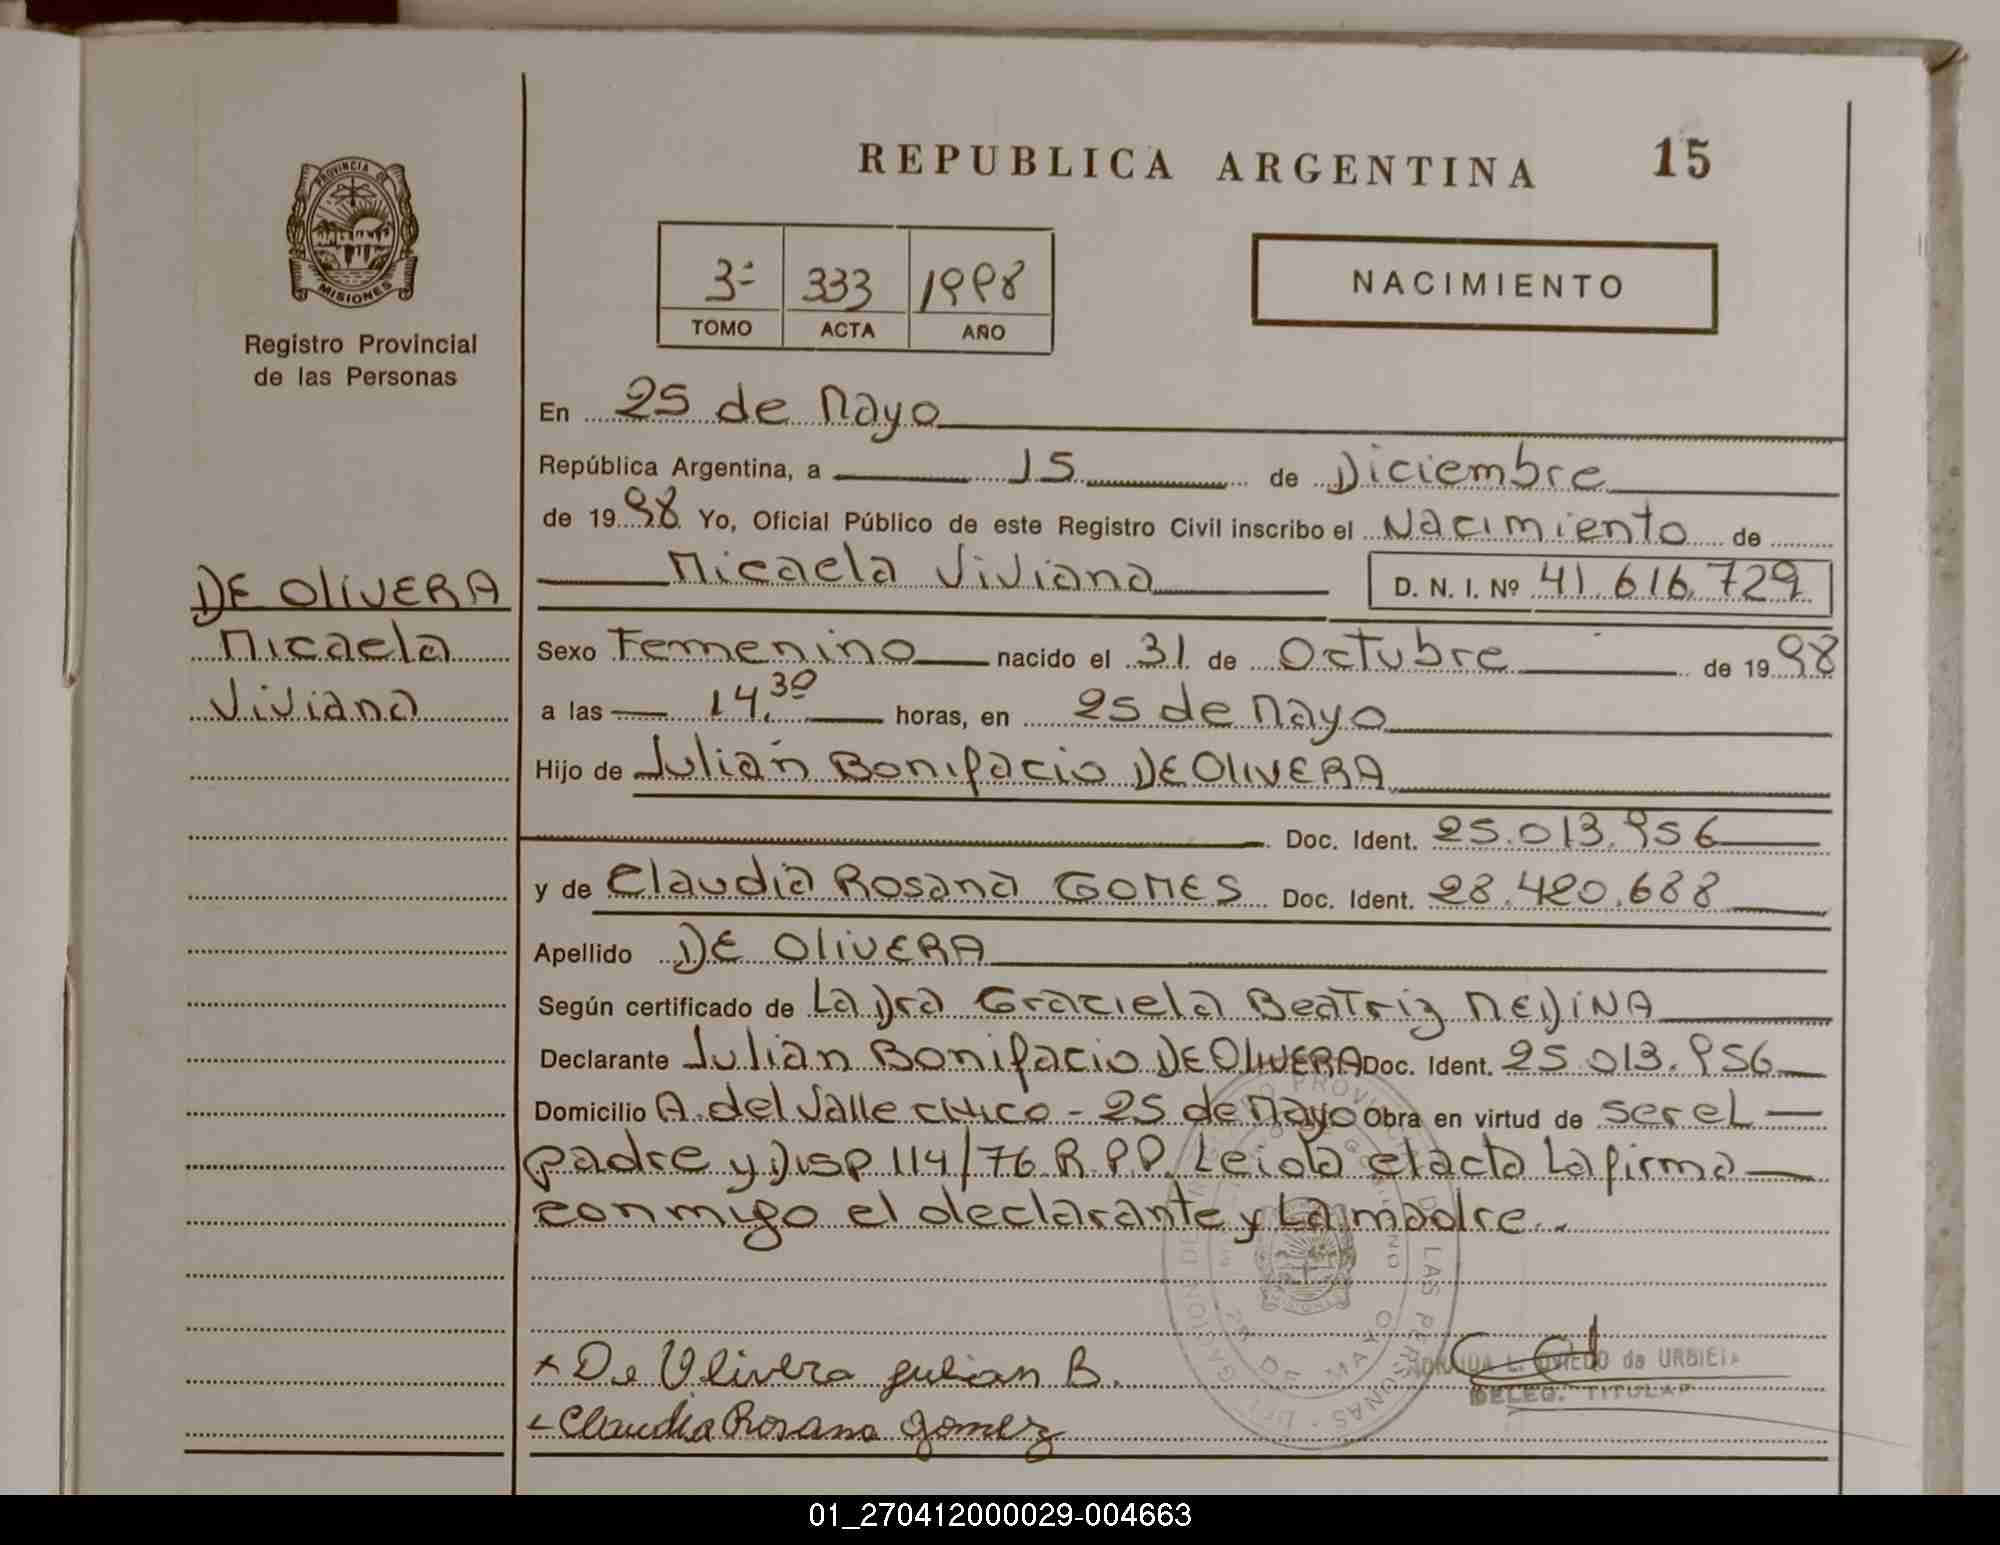 REPUBLICA ARGENTINA 15
PROVINCIA DE
MISIONES
Registro Provincial
de las Personas
3ª 333 1998
TOMO ACTA AÑO
NACIMIENTO
En 25 de Mayo
República Argentina, a 15 de Diciembre
de 1998 Yo, Oficial Público de este Registro Civil inscribo el Nacimiento de
Micaela Viviana D. N. I. Nº 41.616.729
DE OLIVERA
Micaela
Viviana
Sexo Femenino nacido el 31 de Octubre de 1998
a las 14,30 horas, en 25 de Mayo
Hijo de Julián Bonifacio DE OLIVERA
Doc. Ident. 25.013.956
y de Claudia Rosana GOMES Doc. Ident. 28.420.688
Apellido DE OLIVERA
Según certificado de La Dra Graciela Beatriz MEDINA
Declarante Julian Bonifacio DE OLIVERA Doc. Ident. 25.013.956
Domicilio A. del Valle chico - 25 de Mayo Obra en virtud de ser el
padre y Disp 114/76 R.P.P. Leida el acta La firma
conmigo el declarante y La madre..
x De Olivera Julian B.
Claudia Rosana Gomez
L. OVIEDO de URBIETA
DELEG. TITULAR
25 DE MAYO
01_270412000029-004663